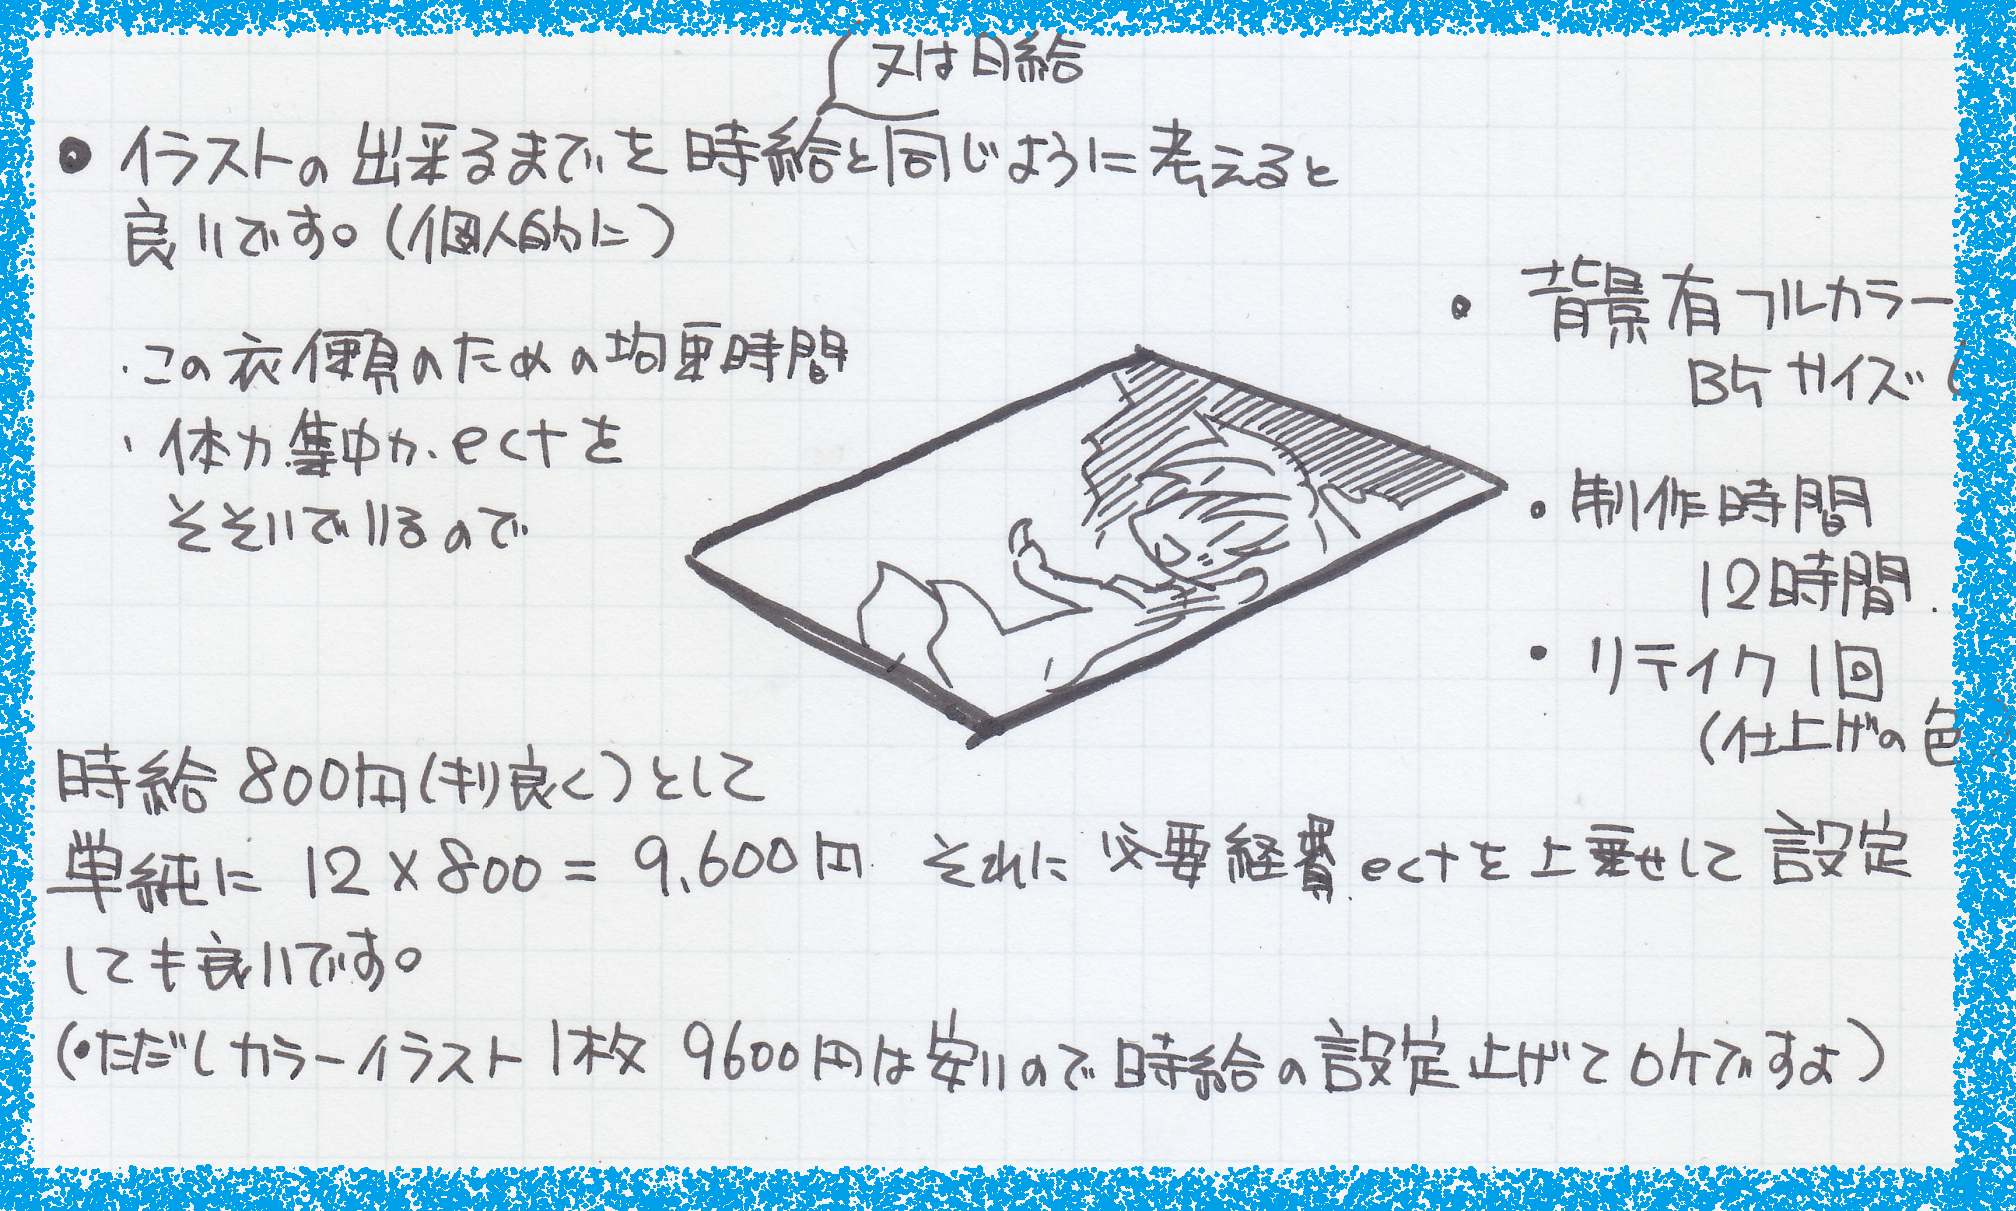 又は日給
● イラストの出来るまでを時給と同じように考えると
良いです。(個人的に)
・この依頼のための拘束時間
・体力集中力、ectを
そそいでいるので
・背景有フルカラー
B5サイズ(
・制作時間
12時間.
・リテイク1回
(仕上げの色
時給800円(キリ良く)として
単純に 12×800=9,600円 それに必要経費ectを上乗せして設定
しても良いです。
(・ただしカラーイラスト1枚 9600円は安いので時給の設定上げてOKですよ)